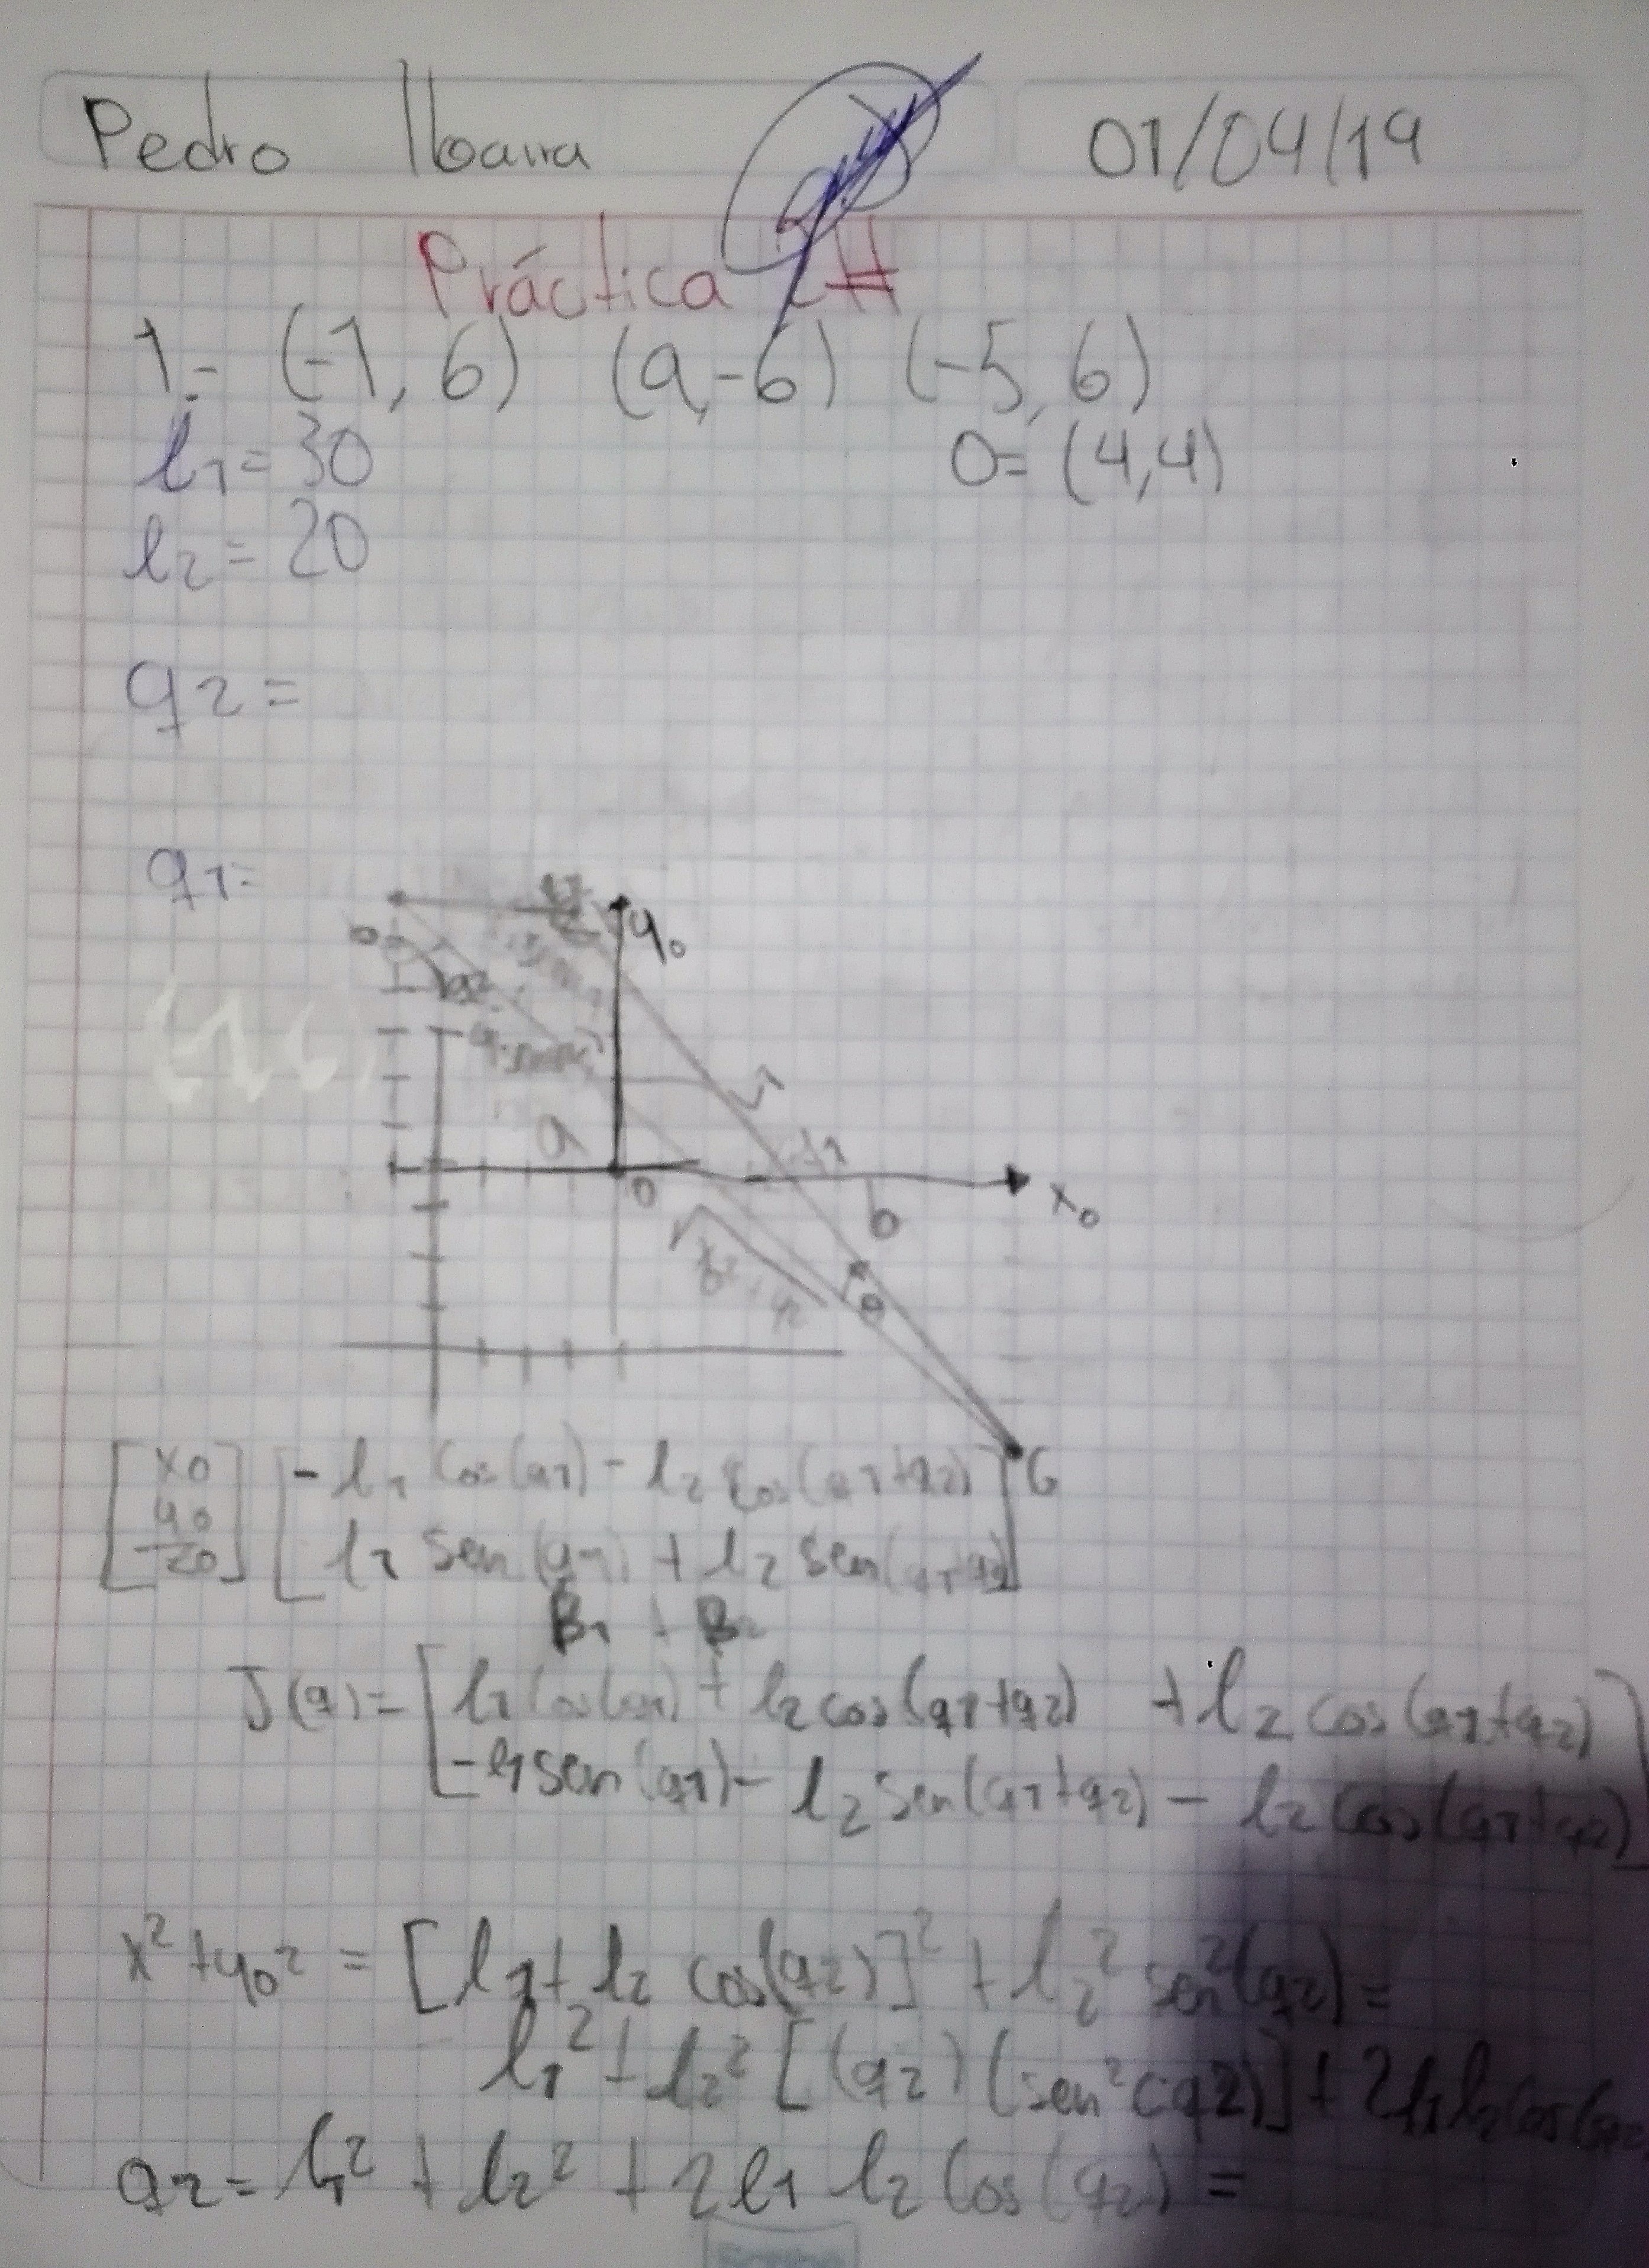 Pedro Ibarra 01/04/19
Práctica
1.- (-1, 6) (9,-6) (-5, 6)
l1= 30 O= (4,4)
l2= 20
q2=
q1=
y0
a
0
b
x0
θ
G
[x0 y0 z0] [-l1 cos(q1) - l2 cos(q1+q2)
l1 sen(q1) + l2 sen(q1+q2)]
B1 + B2
J(q)= [l1 cos(q1) + l2 cos(q1+q2) +l2 cos(q1+q2)
-l1 sen(q1) - l2 sen(q1+q2) - l2 cos(q1+q2)]
x²+y0² = [l1+ l2 cos(q2)]² + l2² sen²(q2)=
l1² + l2² [(q2) (sen²(q2)] + 2l1l2 cos(q2)
q2= l1² + l2² + 2l1 l2 cos(q2) =
Scribe